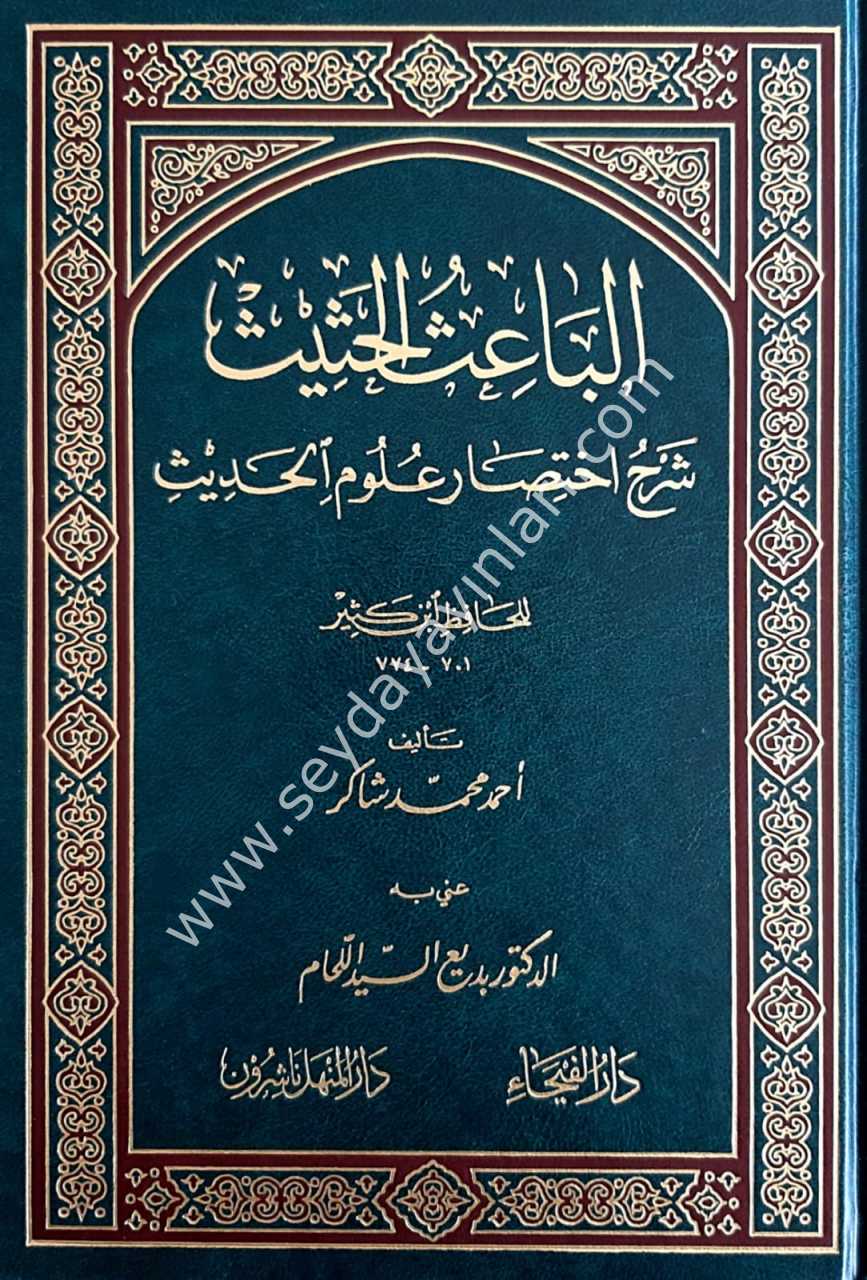 الباعث الحثيث
شرح اختصار علوم الحديث
للحافظ ابن كثير
٧٠١ - ٧٧٤
تأليف
أحمد محمد شاكر
عني به
الدكتور بديع السيد اللحام
دار الفيحاء
دار المنهل ناشرون
www.seydayayinlari.com